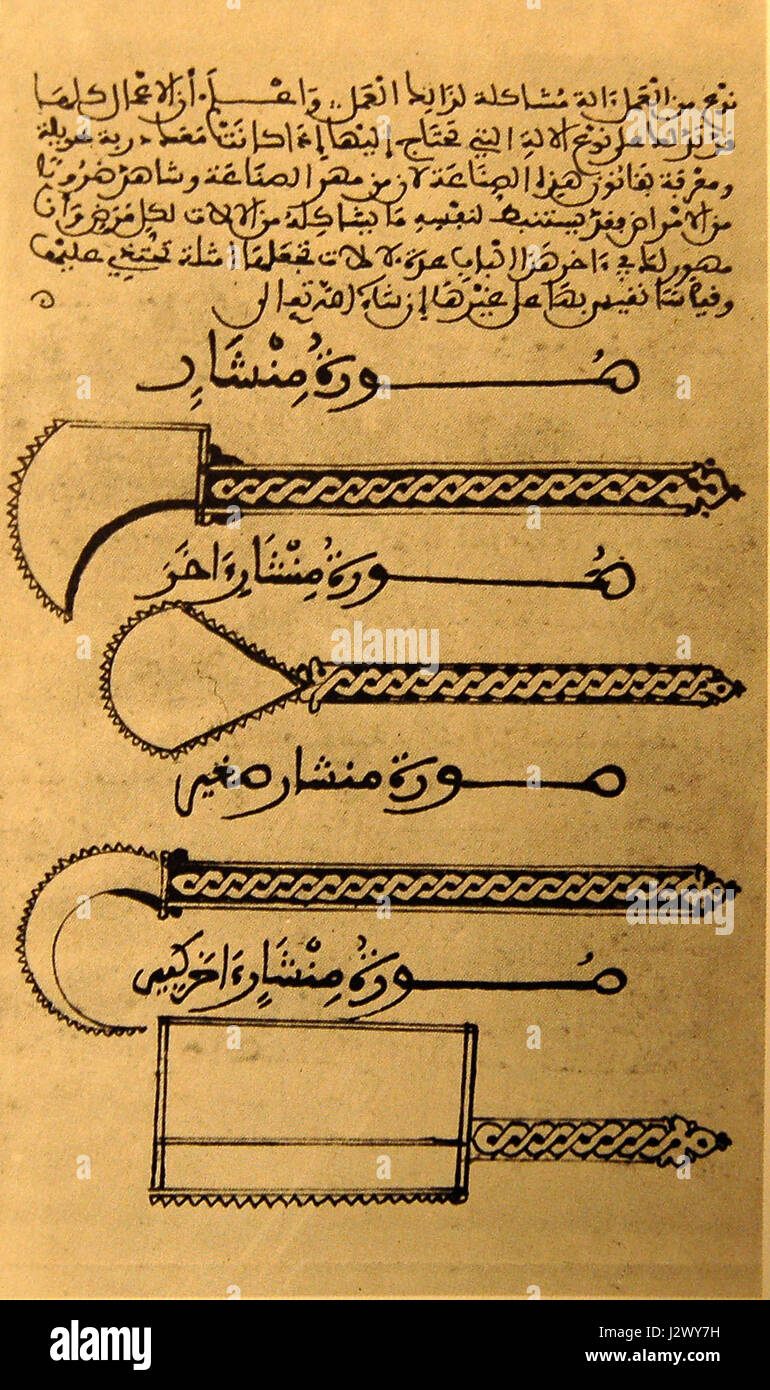 نوع من العمل ءالة مشاكلة لذالك العمل، واعلم أن الاعمال كلها
على نوع الالة التي تحتاج إليها إنما كانت معه دربة طويلة
ومعرفة بقانون هذه الصناعة لان من مهر الصناعة وشاهد ضروبا
من الامراض فقد يستنبط لنفسه ما يشاكله من الالات لكل مرض وأنا
مصور لك في ءاخر هذا الباب عدة ءالات تجعلها أمثلة تحتذي عليها
تقيس بها على غيرها إن شاء الله تعالى
صُورةُ مِنْشَارٍ
صُورةُ مِنْشَارٍ ءَاخَرَ
صورة منشار صغير
صُورةُ مِنْشَارٍ ءاخر كبير
alamy
a
alamy stock photo
J2WY7H
www.alamy.com